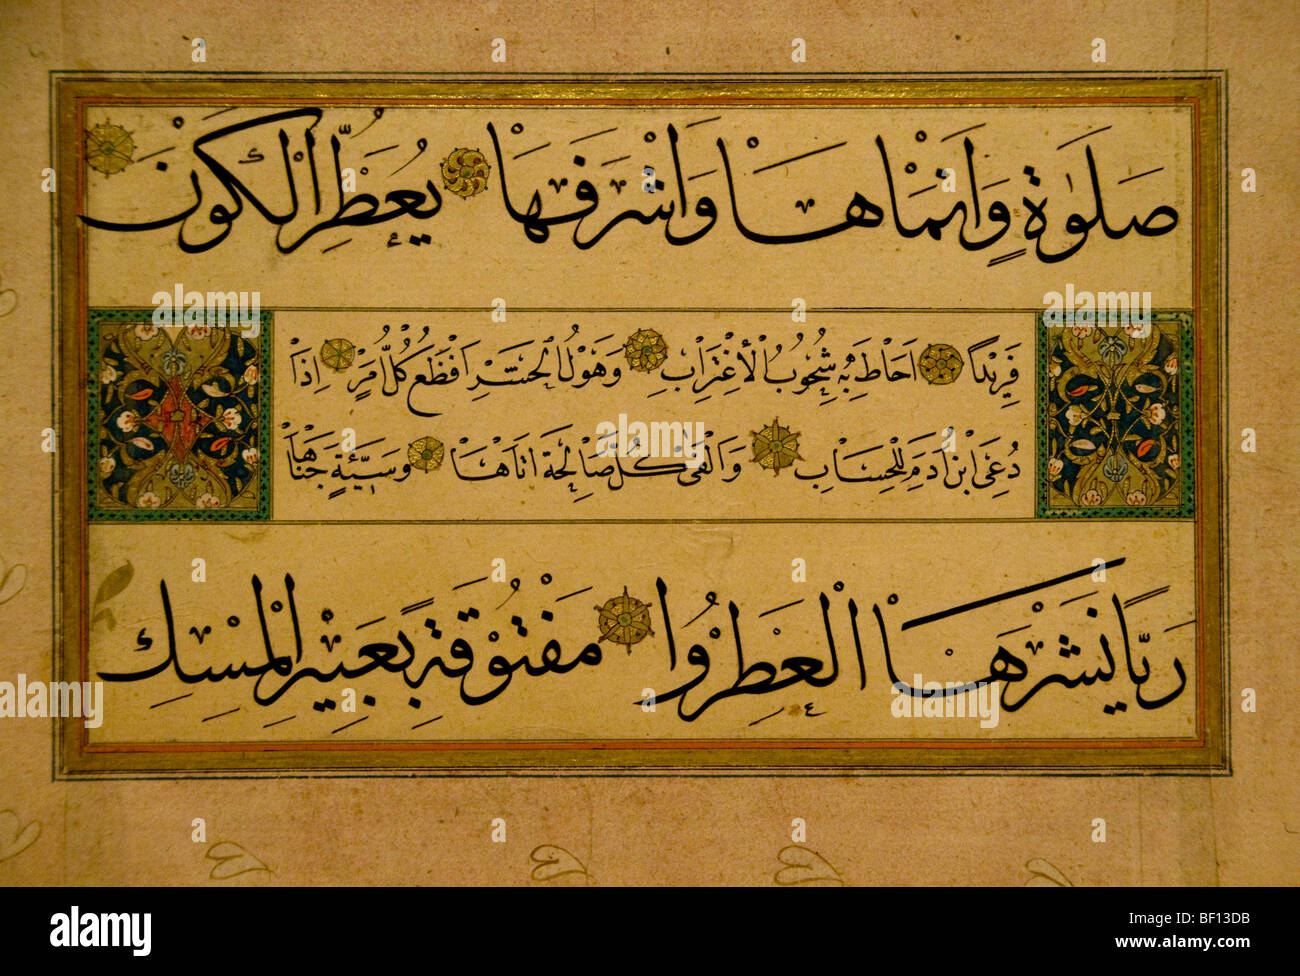 صَلَوٰةٍ وَاَنْمَاهَا وَاَشْرَفَهَا يُعَطِّرُ الْكَوْنَ
فَرِيْدًا اَحَاطَ بِهِ شُحُوْبُ الْاِغْتِرَابِ وَهَوْلُ الْحَشْرِ اَفْظَعُ كُلِّ اَمْرٍ اِذَا
دُعِىَ ابْنُ اٰدَمَ لِلْحِسَابِ وَاَلْفٰى كُلَّ صَالِحَةٍ اَتَاهَا وَسَيِّئَةٍ جَنَاهَا
رَيَّا نَشْرِهَا الْعَطِرُ وَا مَفْتُوْقَةٍ بِعَبِيْرِ الْمِسْكِ
alamy
BF13DB
www.alamy.com